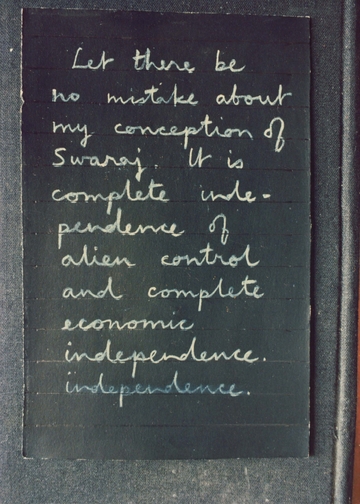 Let there be
no mistake about
my conception of
Swaraj. It is
complete inde-
pendence of
alien control
and complete
economic
independence.
independence.